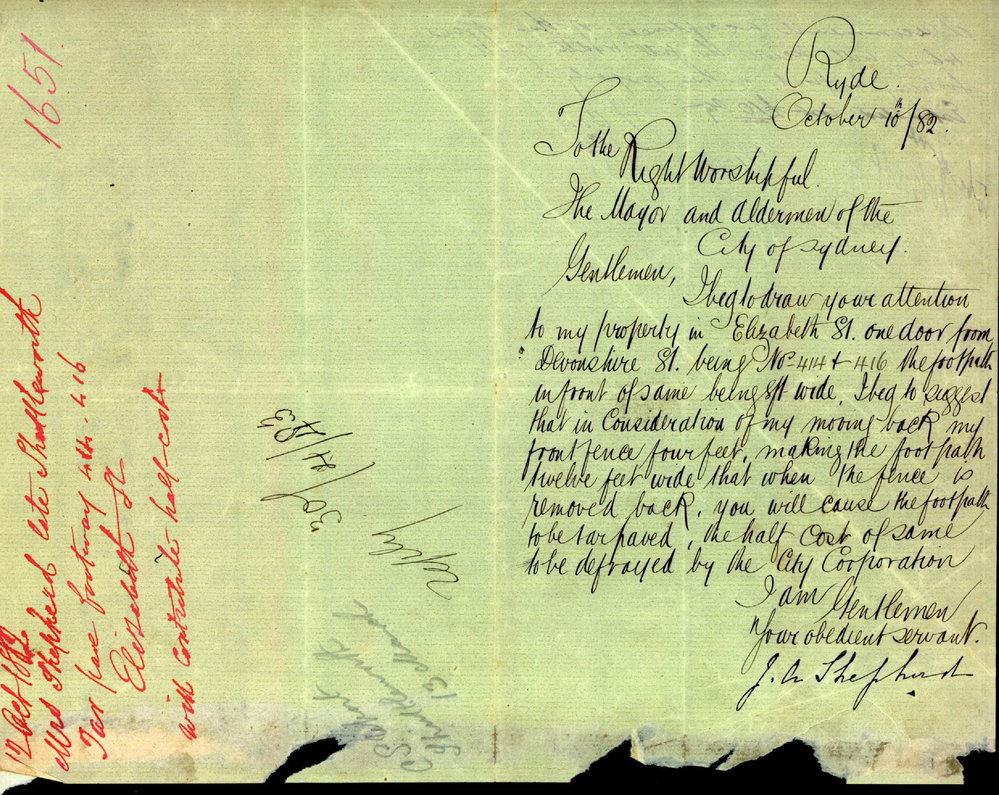 Ryde.
October 10th/82.
To the Right Worshipful.
The Mayor and Aldermen of the
City of Sydney.
Gentlemen,
I beg to draw your attention
to my property in Elizabeth St. one door from
Devonshire St. being No 414 & 416 the footpath
in front of same being 8ft wide. I beg to suggest
that in Consideration of my moving back my
front fence four feet, making the footpath
twelve feet wide that when the fence is
removed back, you will cause the footpath
to be tar paved, the half Cost of same
to be defrayed by the City Corporation
I am Gentlemen
Your obedient servant.
J. A Shepherd
1651.
12 Oct 1882
Mrs Shepherd late Shuttleworth
Tar pave footway 414-416
Elizabeth St
will contribute half cost